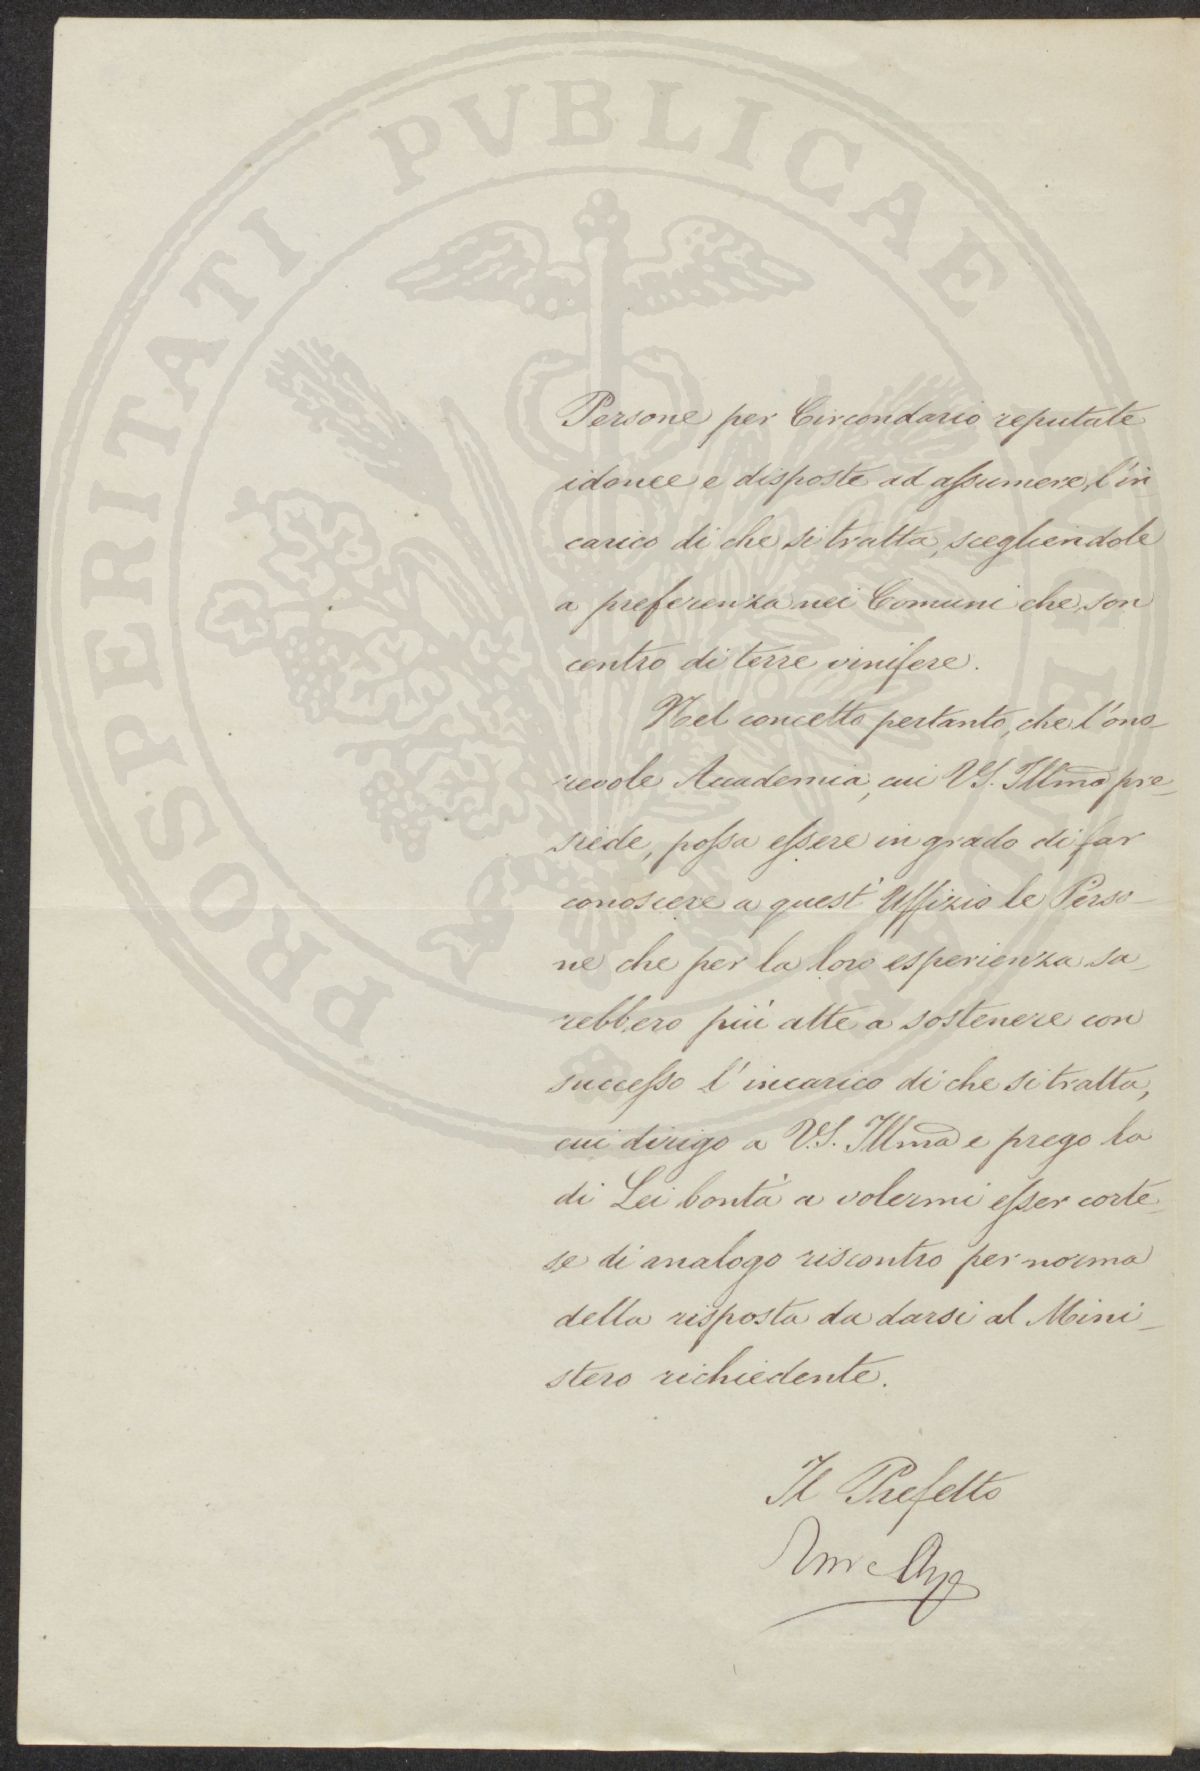 PROSPERITATI PVBLICAE
Persone per Circondario reputate
idonee e disposte ad assumere l'in
carico di che si tratta, scegliendole
a preferenza nei Comuni che son
centro di terre vinifere.
Nel concetto pertanto, che l'ono_
revole Accademia, cui V.S. Illma pre_
siede, possa essere in grado di far
conoscere a quest'Uffizio le Perso_
ne che per la loro esperienza sa_
rebbero più atte a sostenere con
successo l'incarico di che si tratta,
cui dirigo a V.S. Illma e prego la
di Lei bontà a volermi esser corte_
se di analogo riscontro per norma
della risposta da darsi al Mini_
stero richiedente.
Il Prefetto